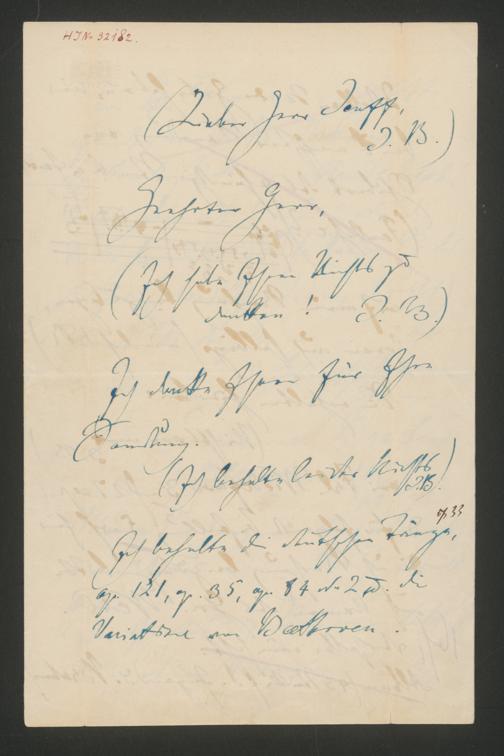 HIN-32182.
(Lieber Herr Senff,
J. B.)
Geehrter Herr,
(Ich habe Ihnen Nichts zu
danken! J. B.)
Ich danke Ihnen für Ihre
Sendung.
(Ich behalte leider Nichts
J.B.)
op. 33
Ich behalte die deutschen Tänze,
op. 121, op. 35, op. 84 No 2 u. die
Variationen von Beethoven.